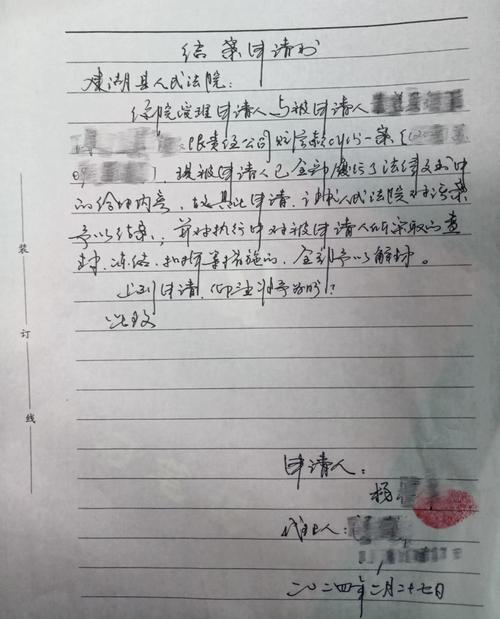 结案申请书
建湖县人民法院：
你院受理申请人与被申请人
限责任公司买卖合同纠纷一案（
），现被申请人已全部履行了法律文书中
的给付内容，故具此申请，请求人民法院对该案
予以结案；前对执行中对被申请人所采取的查
封、冻结、扣押等措施的，全部予以解封。
上列申请，仰法院予
此致
申请人：
杨
代理人：
二〇二四年二月二十七日
装
订
线